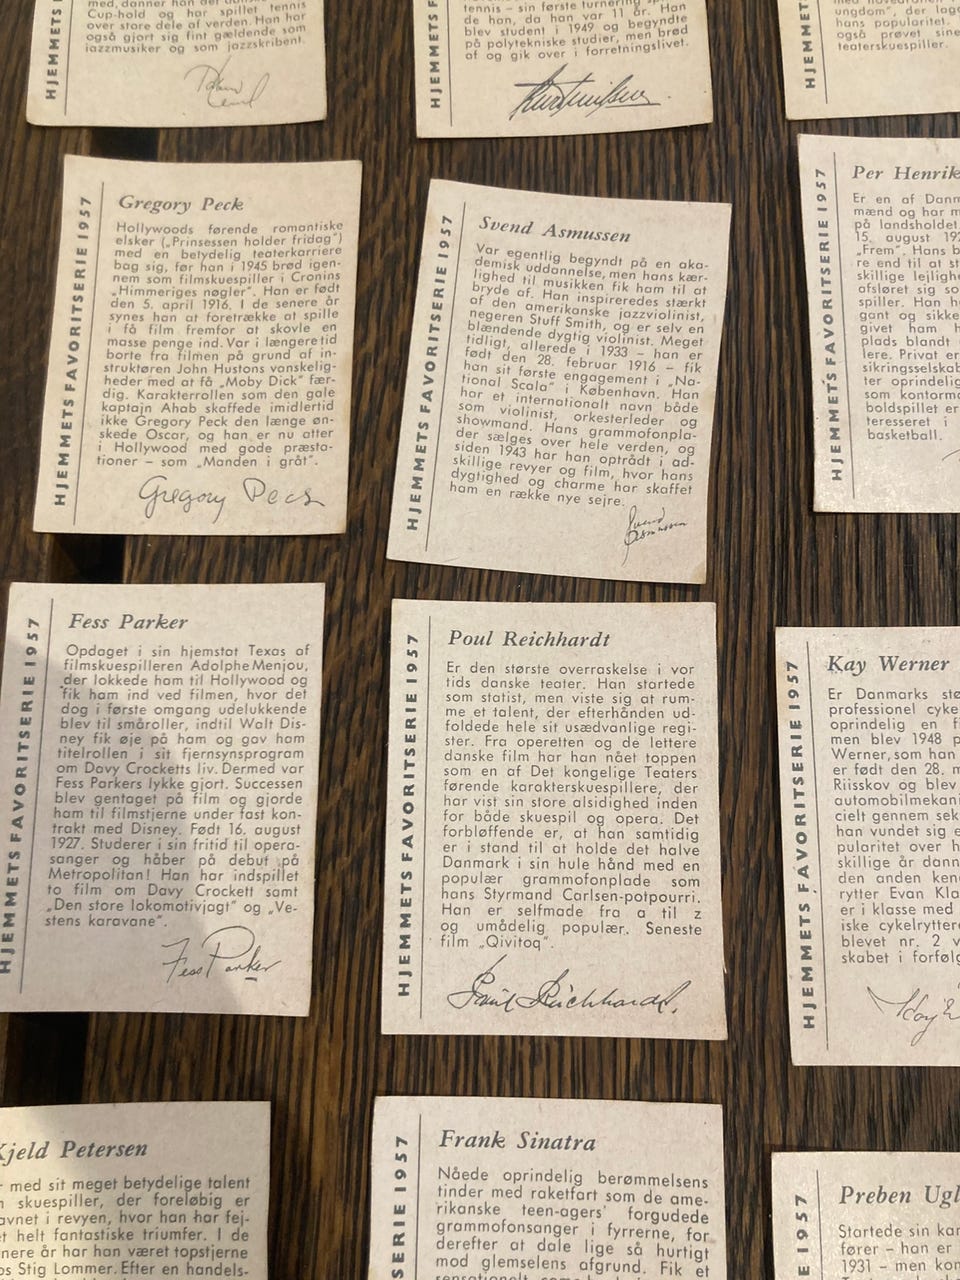 med, danner han det danske
Cup-hold og har spillet tennis
over store dele af verden. Han har
også gjort sig fint gældende som
jazzmusiker og som jazzskribent.
HJEMMETS
tennis – sin første turnering
de han, da han var 11 år. Han
blev student i 1949 og begyndte
på polytekniske studier, men brød
af og gik over i forretningslivet.
HJEMMETS
ungdom", der lag
hans popularitet.
også prøvet sine
teaterskuespiller.
HJEMM
HJEMMETS FAVORITSERIE 1957
Gregory Peck
Hollywoods førende romantiske
elsker („Prinsessen holder fridag")
med en betydelig teaterkarriere
bag sig, før han i 1945 brød igen-
nem som filmskuespiller i Cronins
„Himmeriges nøgler". Han er født
den 5. april 1916. I de senere år
synes han at foretrække at spille
i få film fremfor at skovle en
masse penge ind. Var i længere tid
borte fra filmen på grund af in-
struktøren John Hustons vanskelig-
heder med at få „Moby Dick" fær-
dig. Karakterrollen som den gale
kaptajn Ahab skaffede imidlertid
ikke Gregory Peck den længe øn-
skede Oscar, og han er nu atter
i Hollywood med gode præsta-
tioner – som „Manden i gråt".
Gregory Peck
HJEMMETS FAVORITSERIE 1957
Svend Asmussen
Var egentlig begyndt på en aka-
demisk uddannelse, men hans kær-
lighed til musikken fik ham til at
bryde af. Han inspireredes stærkt
af den amerikanske jazzviolinist,
negeren Stuff Smith, og er selv en
blændende dygtig violinist. Meget
tidligt, allerede i 1933 – han er
født den 28. februar 1916 – fik
han sit første engagement i „Na-
tional Scala" i København. Han
har et internationalt navn både
som violinist, orkesterleder og
showmand. Hans grammofonpla-
der sælges over hele verden, og
siden 1943 har han optrådt i ad-
skillige revyer og film, hvor hans
dygtighed og charme har skaffet
ham en række nye sejre.
Svend
Asmussen
HJEMMETS FAVORITSERIE 1957
Per Henrik
Er en af Danm
mænd og har m
på landsholdet.
15. august 192
„Frem". Hans b
re end til at st
skillige lejlighe
afsløret sig so
spiller. Han h
gant og sikke
givet ham h
plads blandt
lere. Privat er
sikringsselskab
ter oprindelig
som kontorma
boldspillet er
teresseret i
basketball.
HJEMMETS FAVORITSERIE 1957
Fess Parker
Opdaget i sin hjemstat Texas af
filmskuespilleren Adolphe Menjou,
der lokkede ham til Hollywood og
fik ham ind ved filmen, hvor det
dog i første omgang udelukkende
blev til småroller, indtil Walt Dis-
ney fik øje på ham og gav ham
titelrollen i sit fjernsynsprogram
om Davy Crocketts liv. Dermed var
Fess Parkers lykke gjort. Successen
blev gentaget på film og gjorde
ham til filmstjerne under fast kon-
trakt med Disney. Født 16. august
1927. Studerer i sin fritid til opera-
sanger og håber på debut på
Metropolitan! Han har indspillet
to film om Davy Crockett samt
„Den store lokomotivjagt" og „Ve-
stens karavane".
Fess Parker
HJEMMETS FAVORITSERIE 1957
Poul Reichhardt
Er den største overraskelse i vor
tids danske teater. Han startede
som statist, men viste sig at rum-
me et talent, der efterhånden ud-
foldede hele sit usædvanlige regi-
ster. Fra operetten og de lettere
danske film har han nået toppen
som en af Det kongelige Teaters
førende karakterskuespillere, der
har vist sin store alsidighed inden
for både skuespil og opera. Det
forbløffende er, at han samtidig
er i stand til at holde det halve
Danmark i sin hule hånd med en
populær grammofonplade som
hans Styrmand Carlsen-potpourri.
Han er selfmade fra a til z
og umådelig populær. Seneste
film „Qivitoq".
Poul Reichhardt.
HJEMMETS FAVORITSERIE 1957
Kay Werner
Er Danmarks stø
professionel cyke
oprindelig en f
men blev 1948 p
Werner, som han
er født den 28. m
Riisskov og blev
automobilmekani
cielt gennem sek
han vundet sig e
pularitet over h
skillige år dann
den anden kend
rytter Evan Kla
er i klasse med
iske cykelryttere
blevet nr. 2 v
skabet i forfølg
Kay W
Kjeld Petersen
r med sit meget betydelige talent
n skuespiller, der foreløbig er
avnet i revyen, hvor han har fej-
et helt fantastiske triumfer. I de
nere år har han været topstjerne
os Stig Lommer. Efter en handels-
SERIE 1957
Frank Sinatra
Nåede oprindelig berømmelsens
tinder med raketfart som de ame-
rikanske teen-agers' forgudede
grammofonsanger i fyrrerne, for
derefter at dale lige så hurtigt
mod glemselens afgrund. Fik et
E 1957
Preben Ugl
Startede sin kar
fører – han er
1931 – men kon